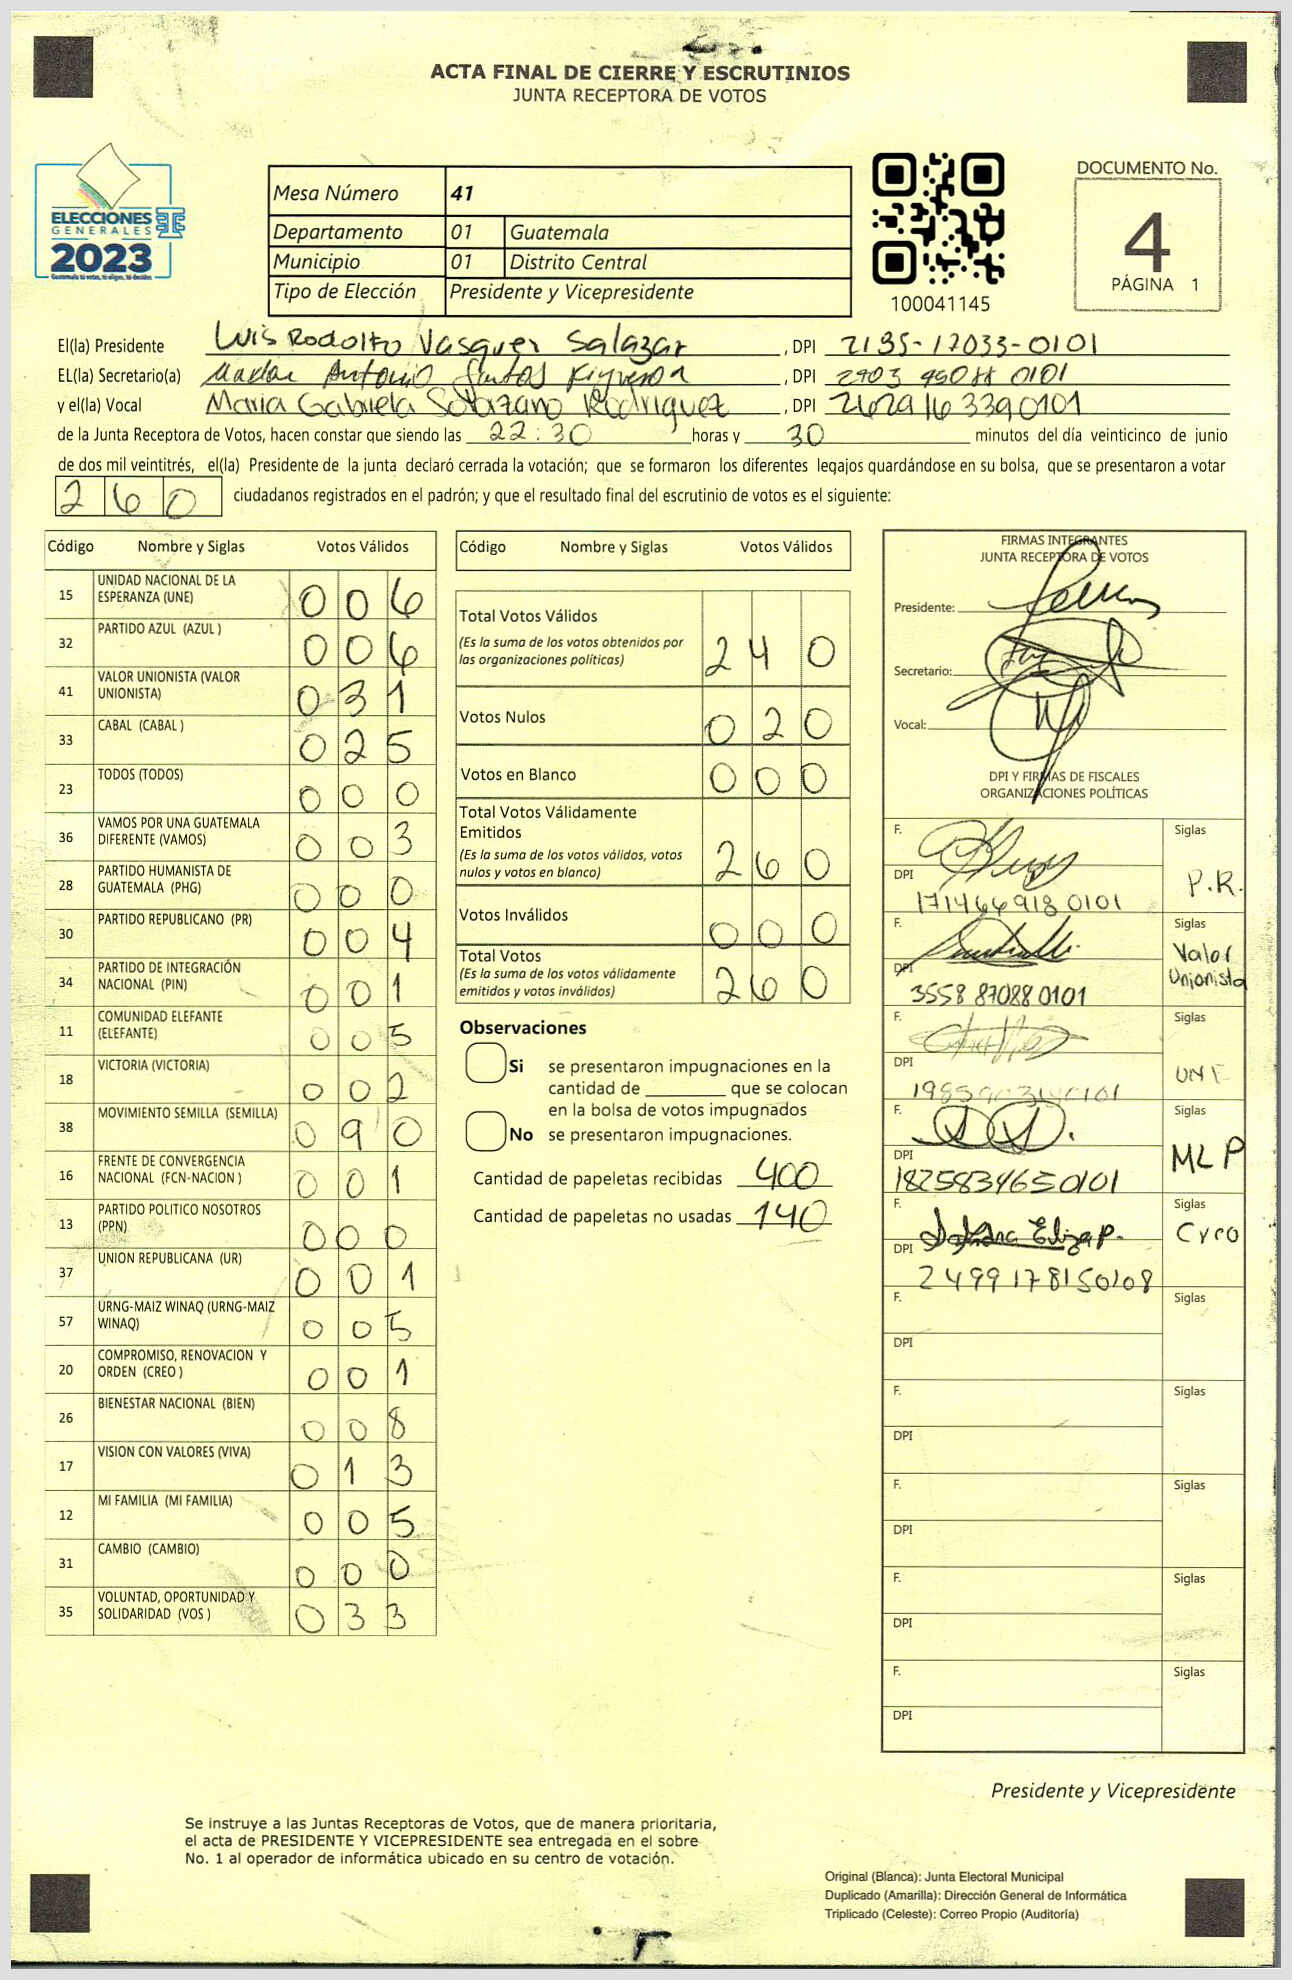 ACTA FINAL DE CIERRE Y ESCRUTINIOS
JUNTA RECEPTORA DE VOTOS
ELECCIONES
GENERALES
2023
Mesa Número 41
Departamento 01 Guatemala
Municipio 01 Distrito Central
Tipo de Elección Presidente y Vicepresidente
100041145
DOCUMENTO No.
4
PÁGINA 1
El(la) Presidente Luis Rodolfo Vasquez Salazar , DPI 2135-17033-0101
EL(la) Secretario(a) Antonio , DPI 0101
y el(la) Vocal Maria Gabriela Rodriguez , DPI 2629163390101
de la Junta Receptora de Votos, hacen constar que siendo las 22:30 horas y 30 minutos del día veinticinco de junio
de dos mil veintitrés, el(la) Presidente de la junta declaró cerrada la votación; que se formaron los diferentes legajos guardándose en su bolsa, que se presentaron a votar
260 ciudadanos registrados en el padrón; y que el resultado final del escrutinio de votos es el siguiente:
Código Nombre y Siglas Votos Válidos
15 UNIDAD NACIONAL DE LA ESPERANZA (UNE) 006
32 PARTIDO AZUL (AZUL ) 006
41 VALOR UNIONISTA (VALOR UNIONISTA) 031
33 CABAL (CABAL ) 025
23 TODOS (TODOS) 000
36 VAMOS POR UNA GUATEMALA DIFERENTE (VAMOS) 003
28 PARTIDO HUMANISTA DE GUATEMALA (PHG) 000
30 PARTIDO REPUBLICANO (PR) 004
34 PARTIDO DE INTEGRACIÓN NACIONAL (PIN) 001
11 COMUNIDAD ELEFANTE (ELEFANTE) 005
18 VICTORIA (VICTORIA) 002
38 MOVIMIENTO SEMILLA (SEMILLA) 090
16 FRENTE DE CONVERGENCIA NACIONAL (FCN-NACION ) 001
13 PARTIDO POLITICO NOSOTROS (PPN) 000
37 UNION REPUBLICANA (UR) 001
57 URNG-MAIZ WINAQ (URNG-MAIZ WINAQ) 005
20 COMPROMISO, RENOVACION Y ORDEN (CREO ) 001
26 BIENESTAR NACIONAL (BIEN) 008
17 VISION CON VALORES (VIVA) 013
12 MI FAMILIA (MI FAMILIA) 005
31 CAMBIO (CAMBIO) 000
35 VOLUNTAD, OPORTUNIDAD Y SOLIDARIDAD (VOS ) 033
Código Nombre y Siglas Votos Válidos
Total Votos Válidos 240
(Es la suma de los votos obtenidos por
las organizaciones políticas)
Votos Nulos 020
Votos en Blanco 000
Total Votos Válidamente
Emitidos 260
(Es la suma de los votos válidos, votos
nulos y votos en blanco)
Votos Inválidos 000
Total Votos 260
(Es la suma de los votos válidamente
emitidos y votos inválidos)
Observaciones
Si se presentaron impugnaciones en la
cantidad de ________ que se colocan
en la bolsa de votos impugnados
No se presentaron impugnaciones.
Cantidad de papeletas recibidas 400
Cantidad de papeletas no usadas 140
FIRMAS INTEGRANTES
JUNTA RECEPTORA DE VOTOS
Presidente:
Secretario:
Vocal:
DPI Y FIRMAS DE FISCALES
ORGANIZACIONES POLÍTICAS
F. Siglas
DPI P.R.
1714669180101
F. Siglas
DPI Valor Unionista
3558 87088 0101
F. Siglas
DPI UNE
F. Siglas
DPI MLP
1825834650101
F. Siglas
DPI
2499178150108
F. Siglas
DPI
F. Siglas
DPI
F. Siglas
DPI
F. Siglas
DPI
F. Siglas
DPI
Presidente y Vicepresidente
Se instruye a las Juntas Receptoras de Votos, que de manera prioritaria,
el acta de PRESIDENTE Y VICEPRESIDENTE sea entregada en el sobre
No. 1 al operador de informática ubicado en su centro de votación.
Original (Blanca): Junta Electoral Municipal
Duplicado (Amarilla): Dirección General de Informática
Triplicado (Celeste): Correo Propio (Auditoría)